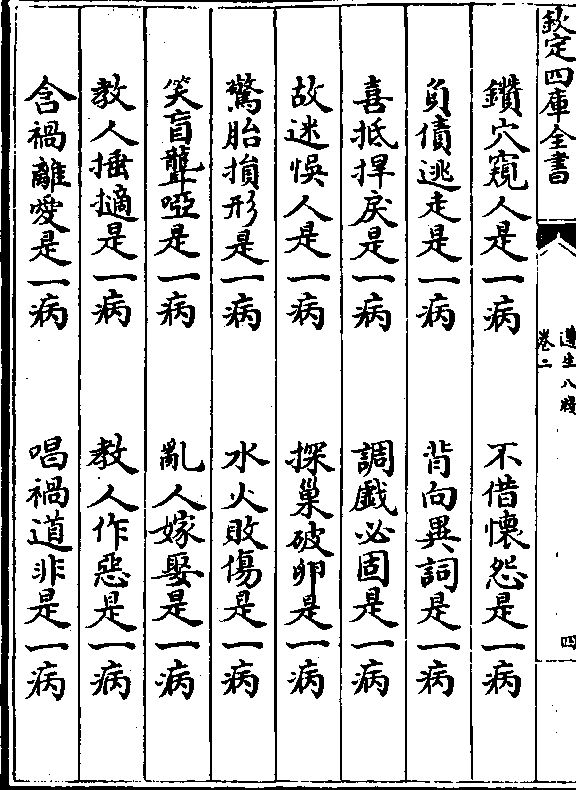 欽定四庫全書
遵生八牋
卷二
四
鑽穴窺人是一病　不借懷怨是一病
負債逃走是一病　背向異詞是一病
喜抵捍戾是一病　調戲必固是一病
故迷悞人是一病　探巢破卵是一病
驚胎損形是一病　水火敗傷是一病
笑盲聾啞是一病　亂人嫁娶是一病
教人捶擿是一病　教人作惡是一病
含禍離愛是一病　唱禍道非是一病